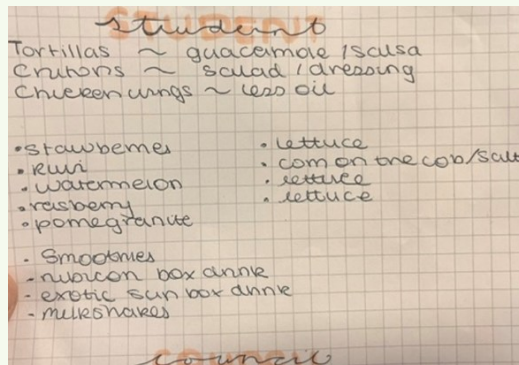 student
Tortillas ~ guacamole / salsa
Crutons ~ salad / dressing
Chicken wings ~ less oil
• strawberries
• kiwi
• watermelon
• rasberry
• pomegranute
• lettuce
• corn on the cob/salt
• lettuce
• lettuce
- Smoothies
- rubicon box drink
- exotic sun box drink
- milkshakes
council